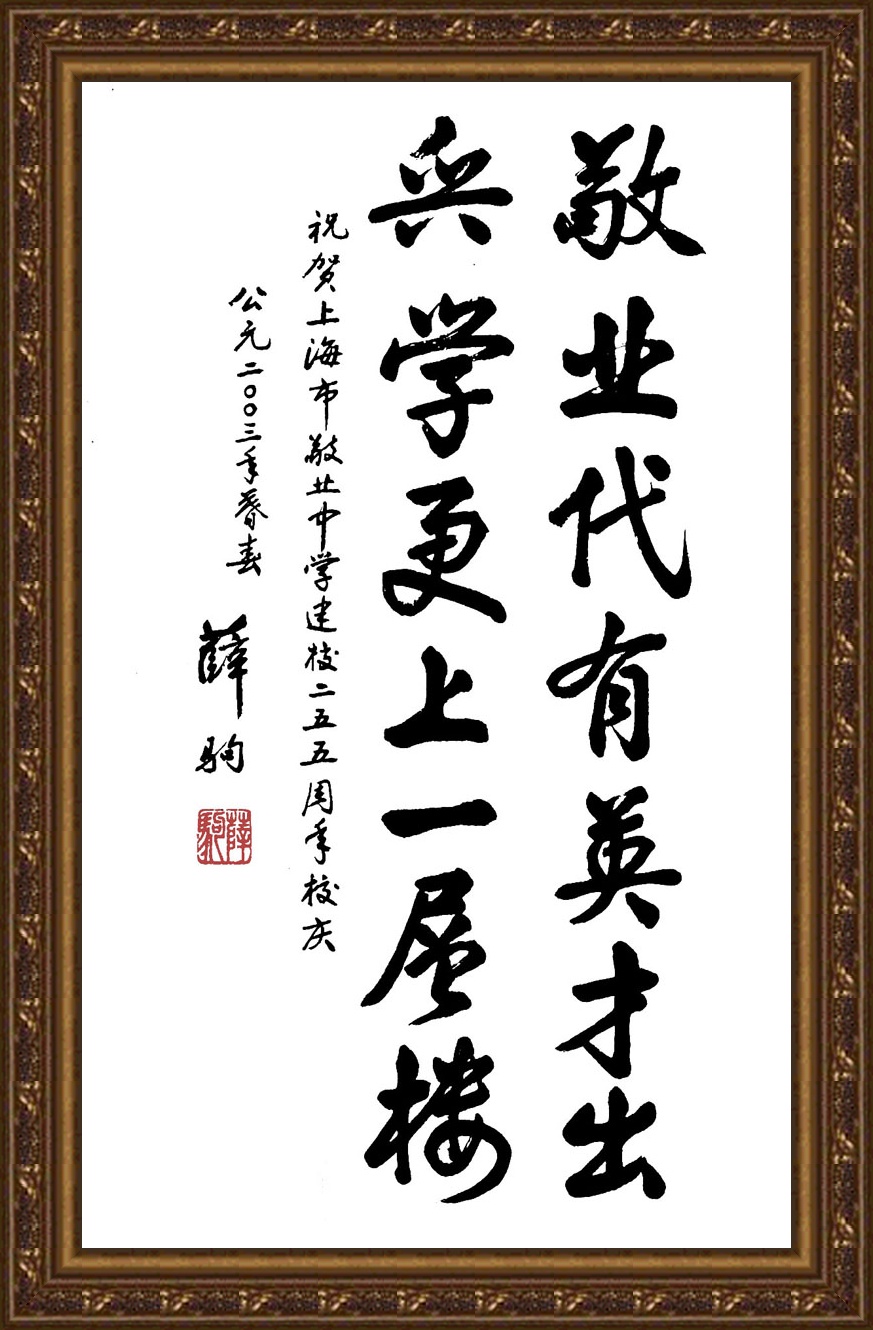 敬业代有英才出
兴学更上一層楼
祝贺上海市敬业中学建校二五五周年校庆
公元二〇〇三年暮春
薛驹
薛駒